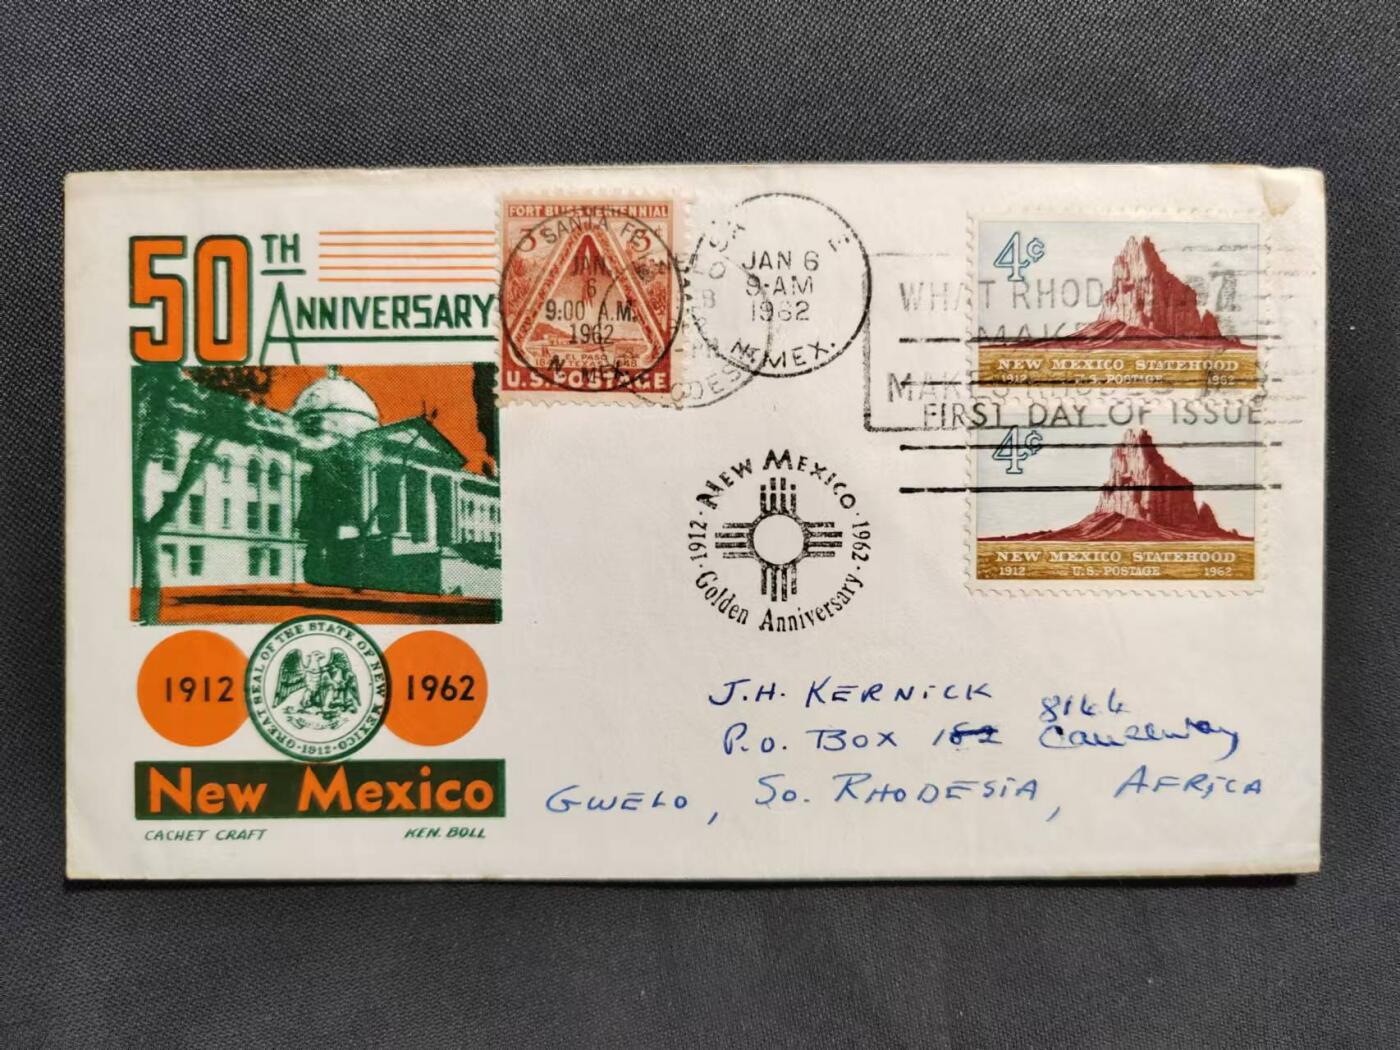 50TH
ANNIVERSARY
1912
GREAT SEAL OF THE STATE OF NEW MEXICO
·1912·
1962
New Mexico
CACHET CRAFT
KEN. BOLL
FORT BLISS CENTENNIAL
3¢ 3¢
EL PASO
TEXAS
U.S. POSTAGE
SANTA FE
JAN.
6
9:00 A.M.
1962
N. MEX.
JAN 6
9-AM
1962
N. MEX.
WHAT RHODESIA
MAKES
MAKES RHODESIA
FIRST DAY OF ISSUE
4¢
NEW MEXICO STATEHOOD
1912 U.S. POSTAGE 1962
4¢
NEW MEXICO STATEHOOD
1912 U.S. POSTAGE 1962
·1912· NEW MEXICO ·1962·
Golden Anniversary
J.H. KERNICK
P.O. BOX 8144
Causeway
GWELO, SO. RHODESIA, AFRICA